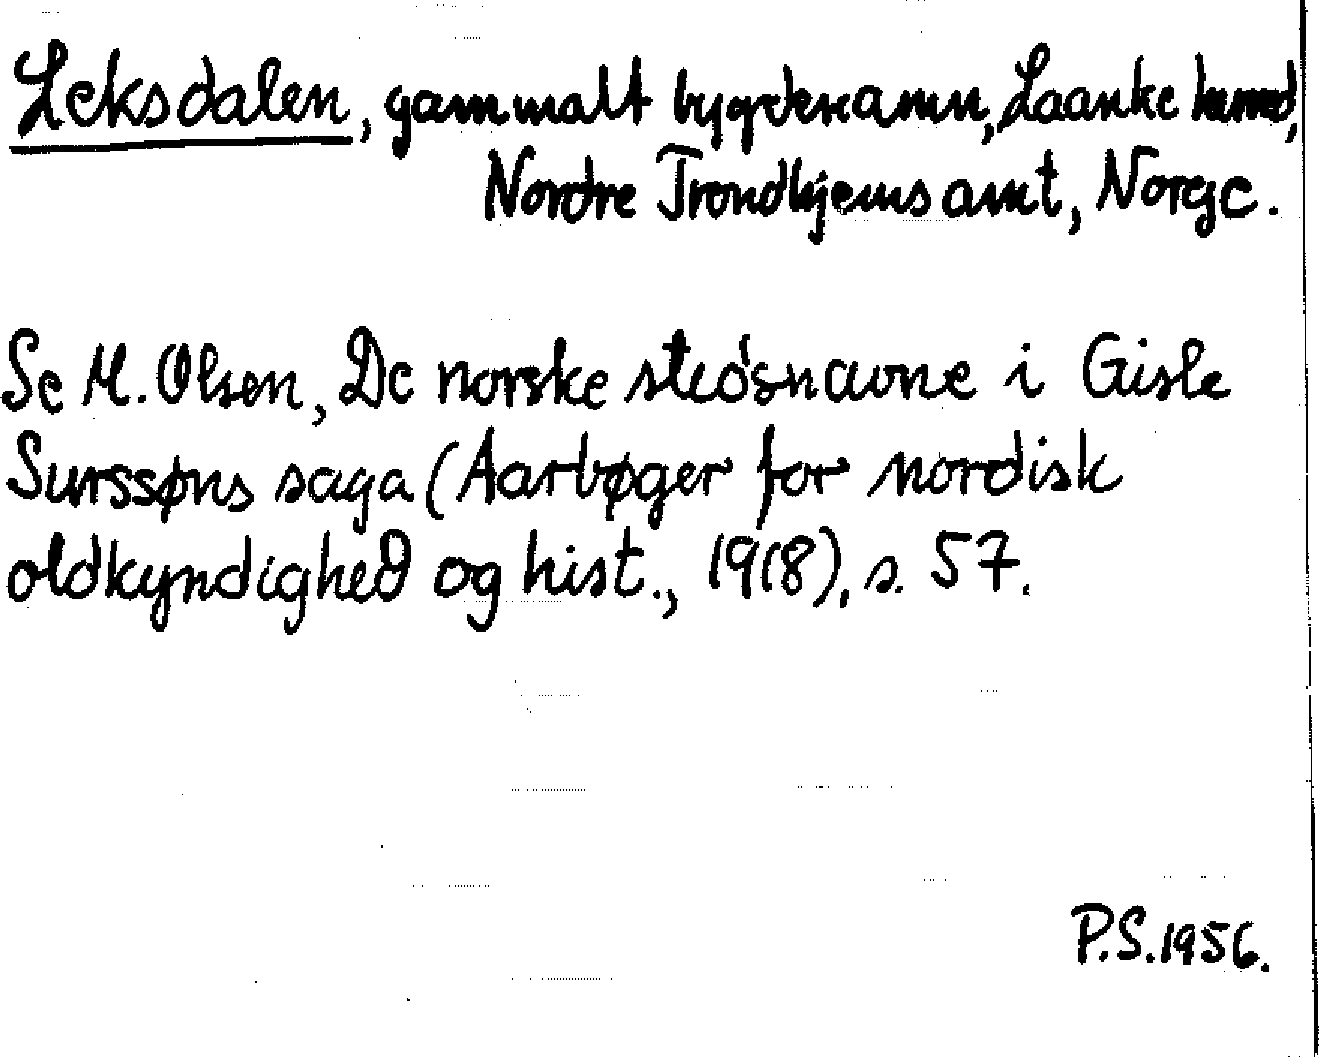 Leksdalen, gammalt bygdenamn, Laanke hered,
Nordre Trondhjems amt, Norge.
Se M. Olsen, De norske stedsnavne i Gisle
Surssøns saga (Aarbøger for nordisk
oldkyndighed og hist., 1918), s. 57.
P.S. 1956.